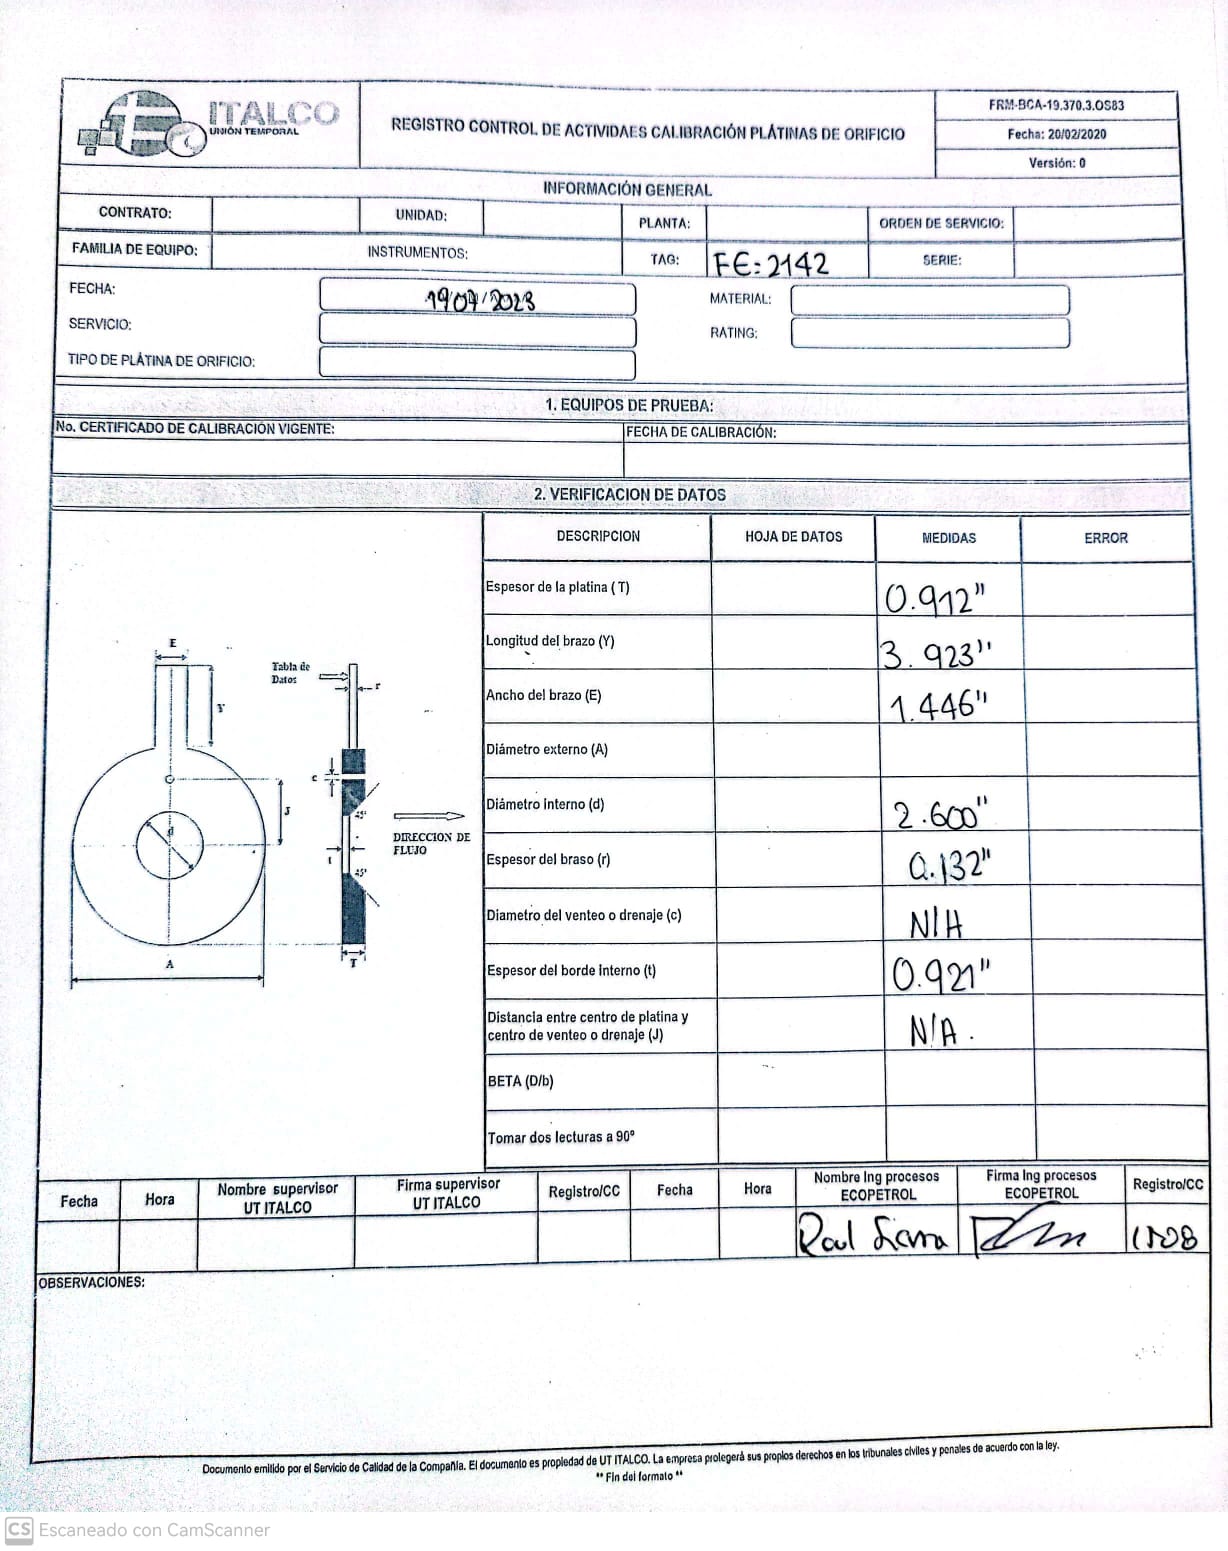 ITALCO
UNIÓN TEMPORAL
REGISTRO CONTROL DE ACTIVIDAES CALIBRACIÓN PLATINAS DE ORIFICIO
FRM-BCA-19.370.3.OS83
Fecha: 20/02/2020
Versión: 0
INFORMACIÓN GENERAL
CONTRATO: UNIDAD: PLANTA: ORDEN DE SERVICIO:
FAMILIA DE EQUIPO: INSTRUMENTOS: TAG: FE:2142 SERIE:
FECHA: 19/07/2023 MATERIAL:
SERVICIO: RATING:
TIPO DE PLÁTINA DE ORIFICIO:
1. EQUIPOS DE PRUEBA:
No. CERTIFICADO DE CALIBRACIÓN VIGENTE: FECHA DE CALIBRACIÓN:
2. VERIFICACION DE DATOS
DESCRIPCION HOJA DE DATOS MEDIDAS ERROR
Espesor de la platina (T) 0.912"
Longitud del brazo (Y) 3.923"
Ancho del brazo (E) 1.446"
Diámetro externo (A)
Diámetro interno (d) 2.600"
Espesor del braso (r) 0.132"
Diametro del venteo o drenaje (c) N/A
Espesor del borde interno (t) 0.921"
Distancia entre centro de platina y
centro de venteo o drenaje (J) N/A.
BETA (D/b)
Tomar dos lecturas a 90º
E
Y
d
J
A
Tabla de
Datos
r
c
45º
t
45º
T
DIRECCION DE
FLUJO
Fecha Hora Nombre supervisor UT ITALCO Firma supervisor UT ITALCO Registro/CC Fecha Hora Nombre Ing procesos ECOPETROL Firma Ing procesos ECOPETROL Registro/CC
Raul Sierra
OBSERVACIONES:
Documento emitido por el Servicio de Calidad de la Compañía. El documento es propiedad de UT ITALCO. La empresa protegerá sus propios derechos en los tribunales civiles y penales de acuerdo con la ley.
** Fin del formato **
CS Escaneado con CamScanner